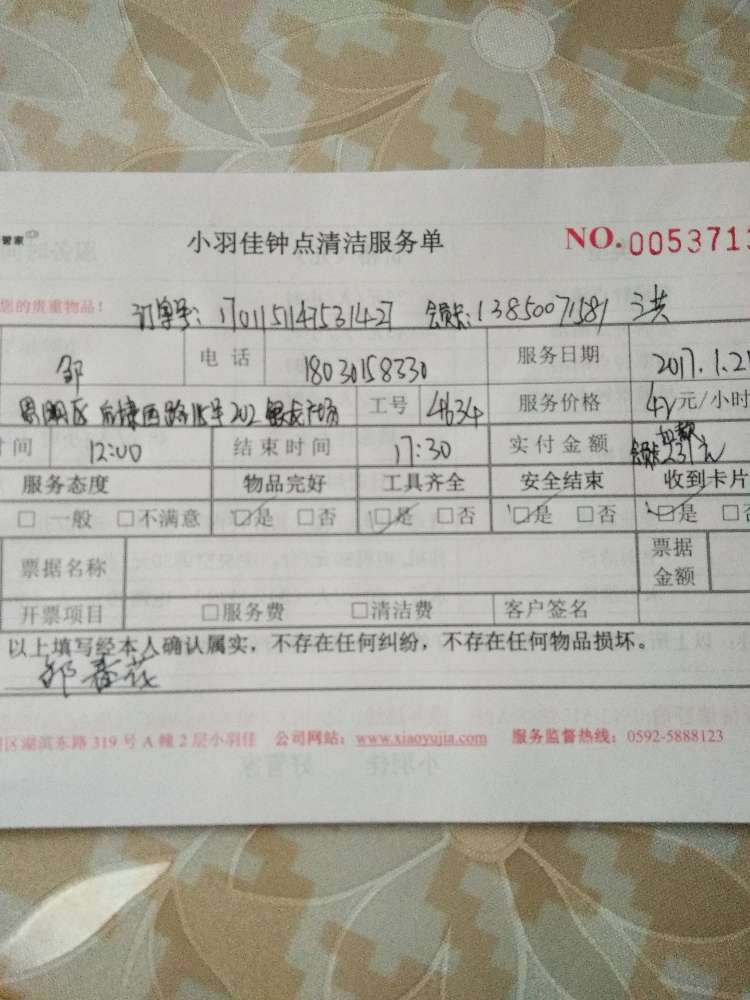 管家
小羽佳钟点清洁服务单 NO.0053713
您的贵重物品！
订单号：1701151147531427 会员卡：13850071581 洪
邹 电话 18030158330 服务日期 2017.1.21
思明区 后埭西路 202 工号 4634 服务价格 42元/小时
时间 12:00 结束时间 17:30 实付金额 会员卡扣款231元
服务态度 物品完好 工具齐全 安全结束 收到卡片
□一般 □不满意 ☑是 □否 ☑是 □否 ☑是 □否 ☑是 □否
票据名称 票据金额
开票项目 □服务费 □清洁费 客户签名
以上填写经本人确认属实，不存在任何纠纷，不存在任何物品损坏。
邹春花
区湖滨东路 319 号 A 幢 2 层小羽佳 公司网站：www.xiaoyujia.com 服务监督热线：0592-5888123